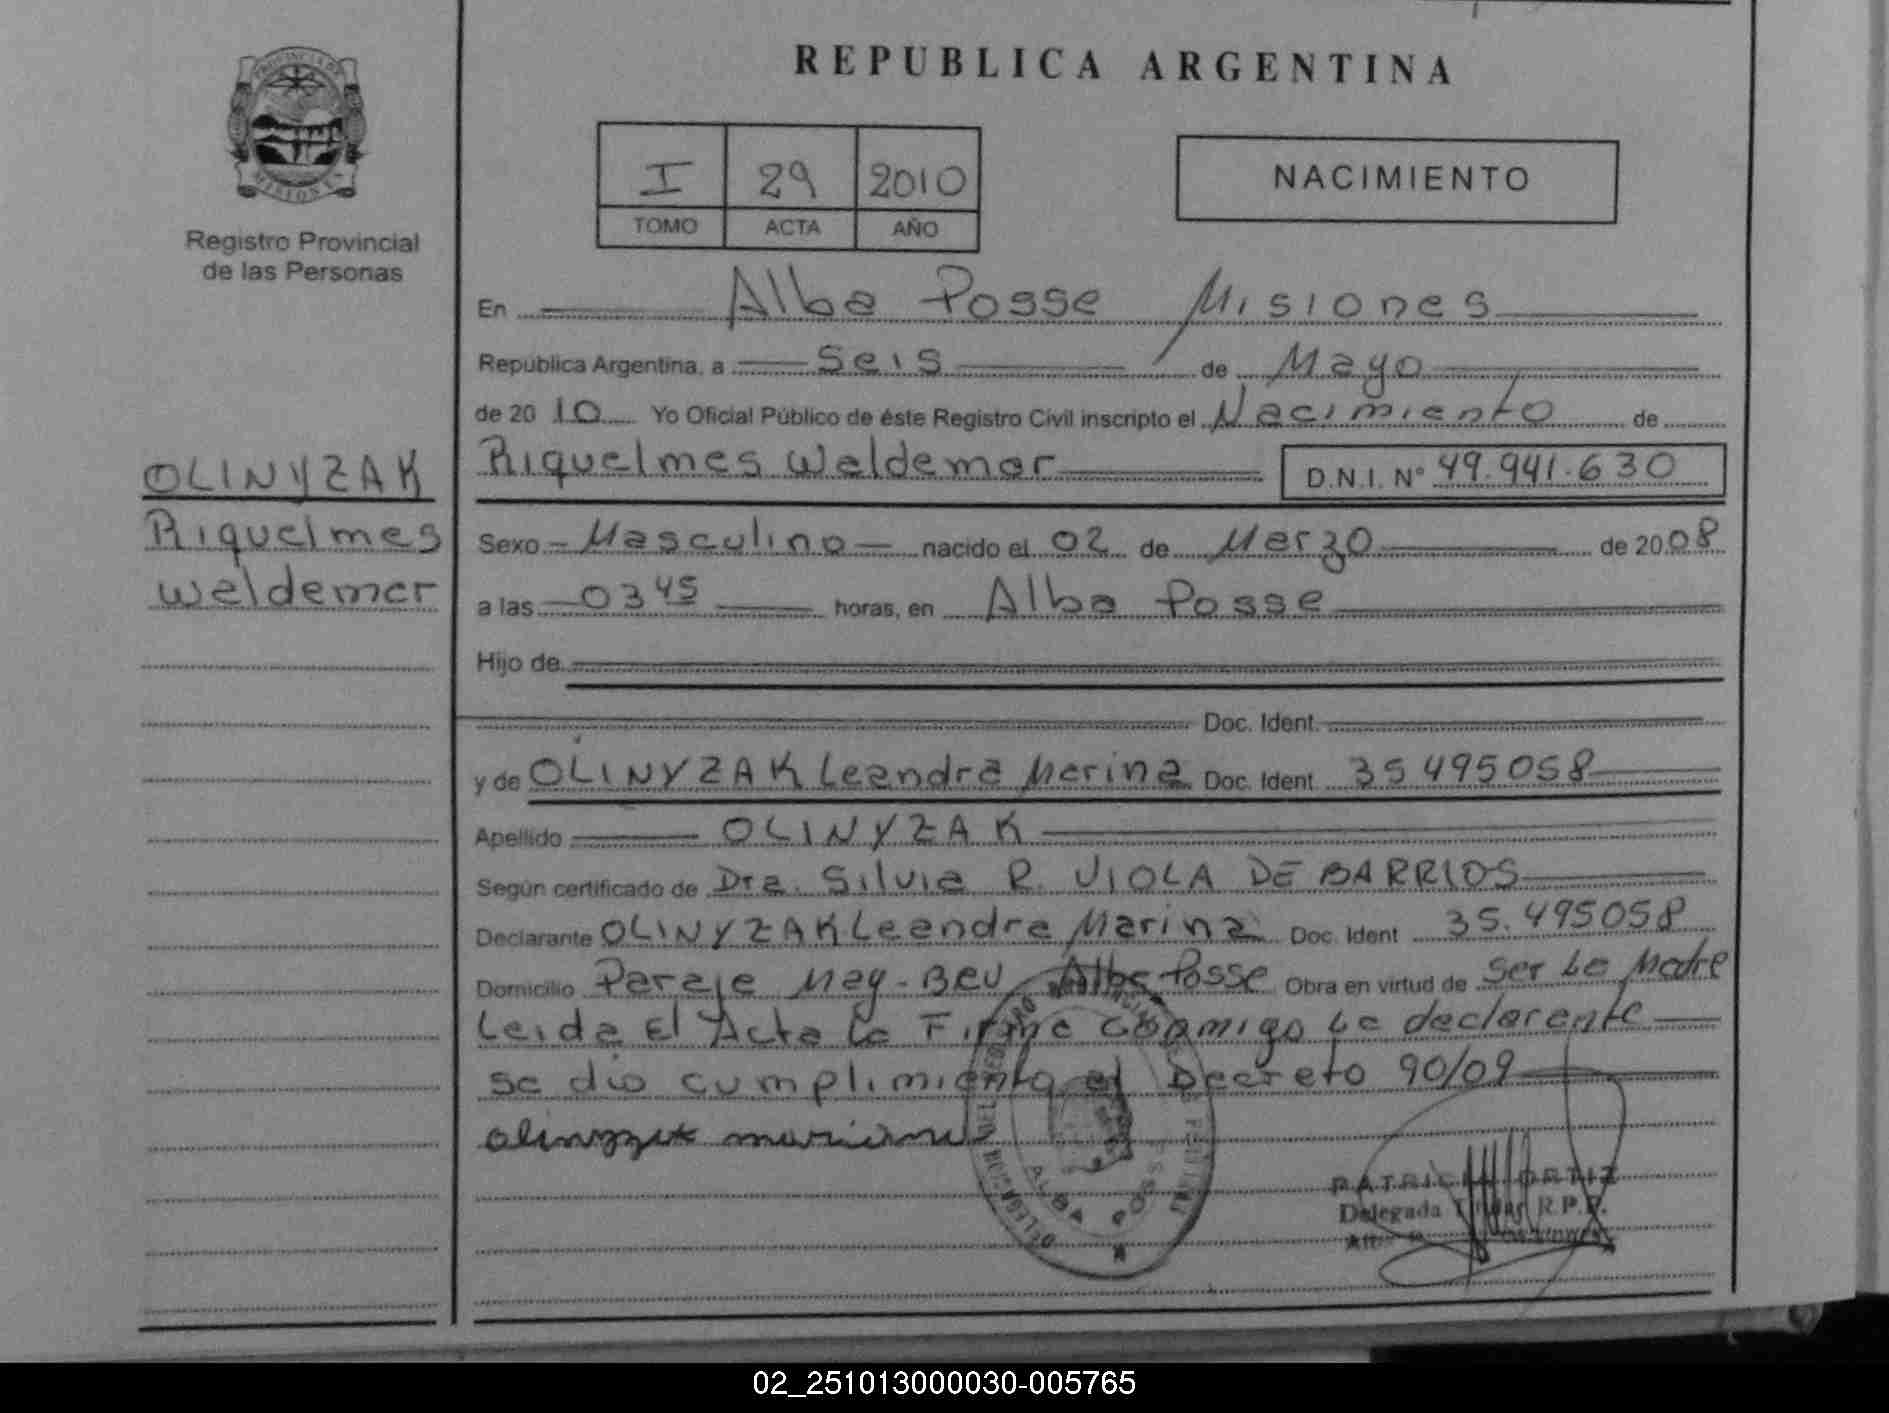 REPUBLICA ARGENTINA
PROVINCIA DE
MISIONES
Registro Provincial
de las Personas
I 29 2010
TOMO ACTA AÑO
NACIMIENTO
En Alba Posse Misiones
Republica Argentina, a Seis de Mayo
de 20 10 Yo Oficial Público de éste Registro Civil inscripto el Nacimiento de
Riquelmes Waldemar D.N.I. Nº 49.941.630
OLINYZAK
Riquelmes
Waldemar
Sexo Masculino nacido el 02 de Marzo de 2008
a las 03 45 horas, en Alba Posse
Hijo de
Doc. Ident.
y de OLINYZAK Leandra Marina Doc. Ident 35495058
Apellido OLINYZAK
Según certificado de Dra. Silvia R. VIOLA DE BARRIOS
Declarante OLINYZAK Leandra Marina Doc. Ident 35.495058
Domicilio Paraje May-Beu Alba Posse Obra en virtud de Ser La Madre
Leida El Acta La Firma Conmigo La declarante
se dio cumplimiento al Decreto 90/09
ALBA POSSE
PATRICIA ORTIZ
Delegada R.P.P.
02_251013000030-005765